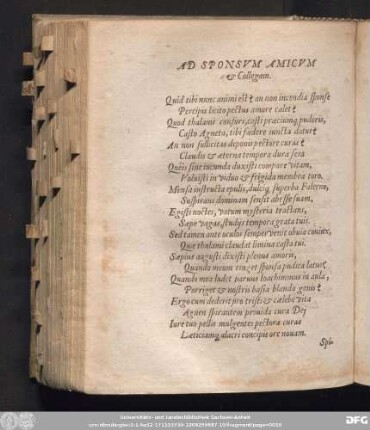 AD SPONSVM AMICVM
& Collegam.
Quid tibi nunc animi est? an non incendia sponse
Percipis licito pectus amore calet?
Quod thalami consors, casti præciumq; pudoris,
Casto Agneta, tibi foedere iuncta datur?
An non sollicitas deponis pectore curas?
Claudis & æterna tempora dura sera
Queis sine iucunda duxisti compare vitam,
Voluisti in viduo & frigida membra toro.
Mensa instructa epulis, dulciq; superba Falerno,
Suspirans dominam sensit abesse suam,
Egisti noctes, vatum mysteria tractans,
Sæpe vagas, studijs tempora grata tui.
Sed tamen ante oculos semper venit obuia coniux,
Quæ thalami claudat limina casta tui.
Sæpius augusti dixisti plenus amoris,
Quando meum tinget sponsa pudica latus?
Quando mea ludet paruus Ioachimus in aula,
Porriget & nostris basia blanda genis?
Ergo cum dederit pro tristi & cælebe vita
Agnen spirantem prouida cura Dei
Iure tuo pellis mulgentes pectora curas
Læticiamq; alacri concipis ore nouam.
Spi-
Universitäts- und Landesbibliothek Sachsen-Anhalt
DFG